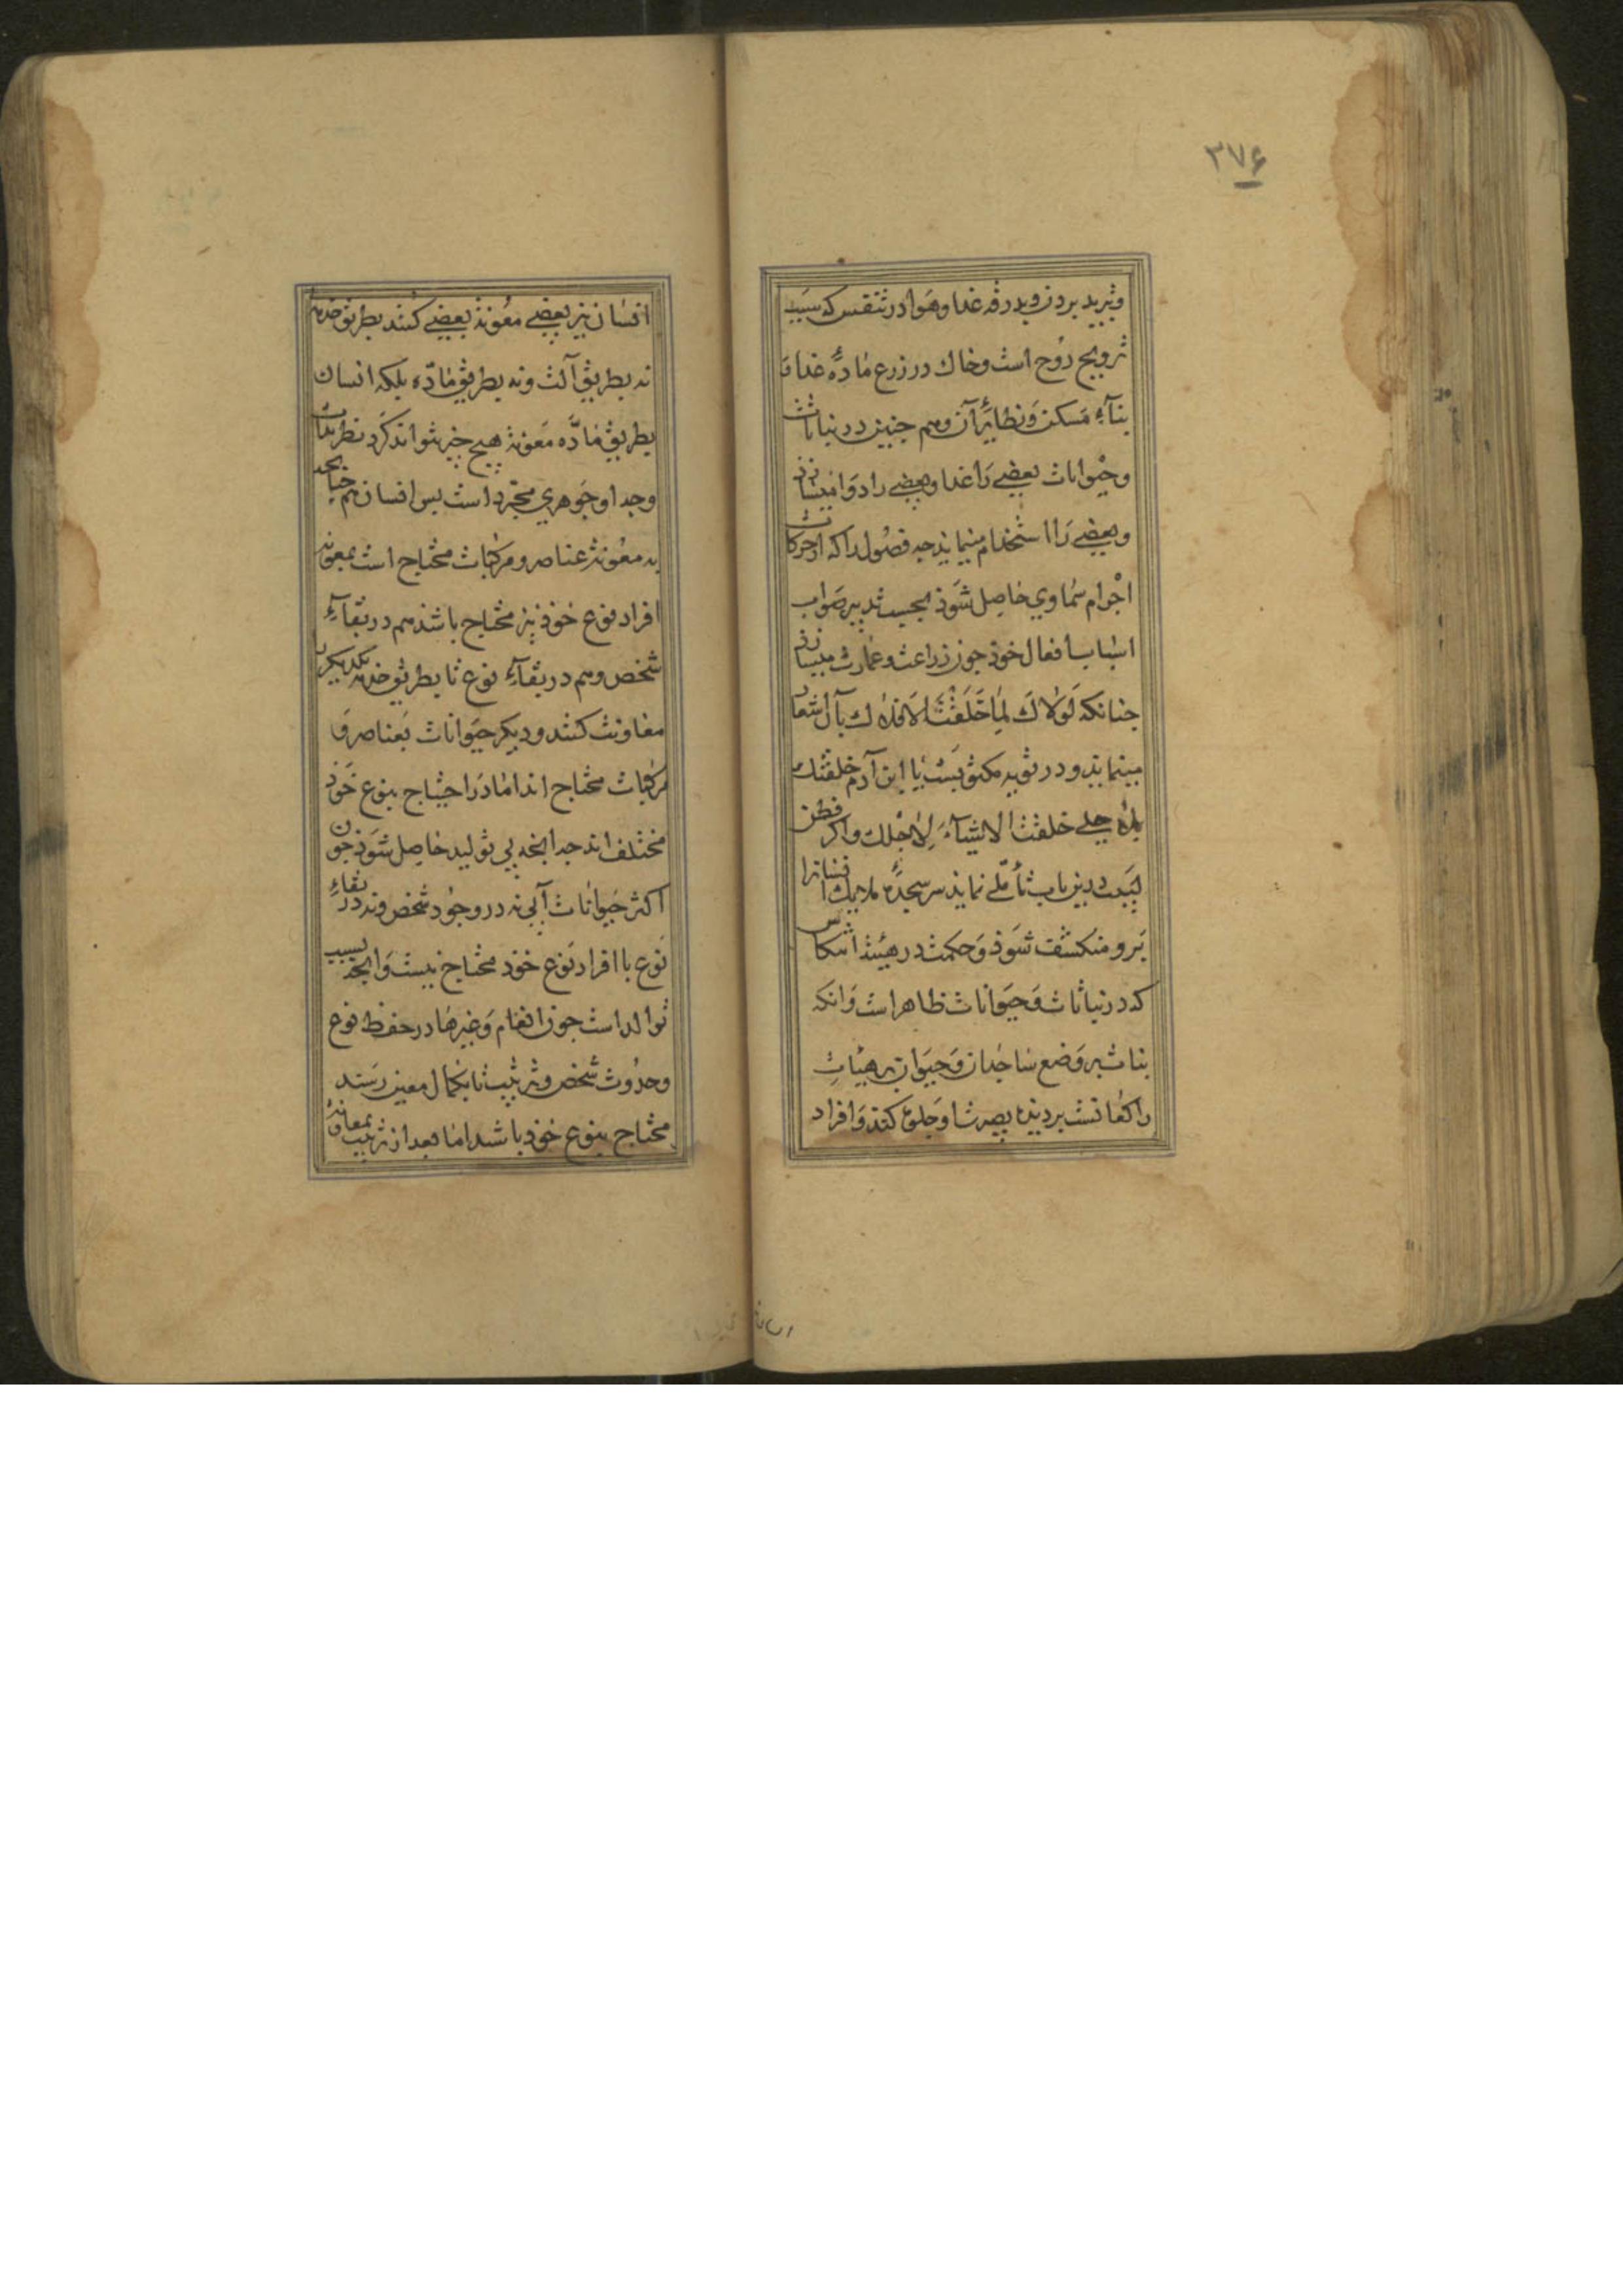 ۳۷۶
وتبرید بردن وبدرقه غذا وهوا در تنفس که سبب
ترویح روح است وخاك در زرع مادّه غذا و
بنآء مسکن ونظایر آن وهم جنین در نباتات
وحیوانات بعضی را غذا وبعضی را دوا میسازد
وبعضی را استخدام مینماید جه فصول را که از حرکات
اجرام سماوی حاصل شوذ بحسب تدبیر صواب
اسباب افعال خوذ جون زراعت وعمارت میسازد
جنانکه لولاك لما خلقت الافلاك بآن اشعار
مینماید ودر توریه مکتوبست یا ابن آدم خلقتك
لاجلی خلقت الاشیآء لاجلك واکر فطن
لبیب درین باب تأمّلی نماید سر سجدۀ ملایك انسانرا
برو منکشف شوذ وحکمت در هیئت انتکاس
که در نباتات وحیوانات ظاهر است وانکه
نبات بر وضع ساجدان وحیوان بر هیئات
راکعانست بر دیدۀ بصیرتش جلوه کند وافراد
انسان نیز بعضی معونت بعضی کنند بطریق خدمت
نه بطریق آلت ونه بطریق مادّه بلکه انسان
بطریق مادّه معونت هیج جیز نتواند کرد نظر بذات
وجه او جوهری مجرّد است بس انسان هم جنانجه
به معونت عناصر ومرکبات محتاج است بمعونت
افراد نوع خوذ نیز محتاج باشذ هم در بقآء
شخص وهم در بقآء نوع تا بطریق خدمت یکدیکر را
معاونت کنند ودیکر حیوانات بعناصر و
مرکبات محتاج اند اما در احتیاج بنوع خوذ
مختلف اند جه انجه بی تولید حاصل شوذ جون
اکثر حیوانات آبی نه در وجود شخص ونه در بقاء
نوع با افراد نوع خوذ محتاج نیست وانجه بسبب
توالد است جون انعام وغیرها در حفظ نوع
وحدوث شخص وتربیت تا بکمال معین رسند
محتاج بنوع خوذ باشد اما بعد از تربیت بمعاونت